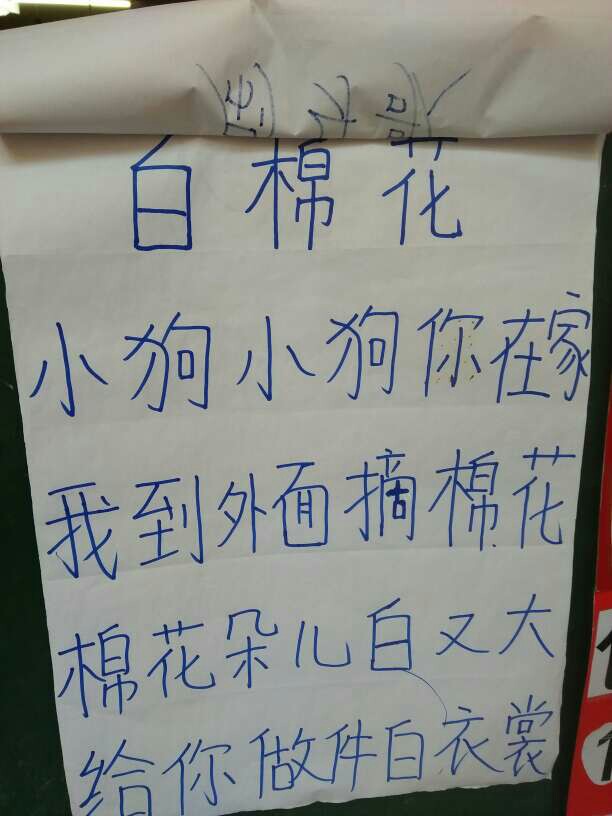 白棉花
小狗小狗你在家
我到外面摘棉花
棉花朵儿白又大
给你做件白衣裳